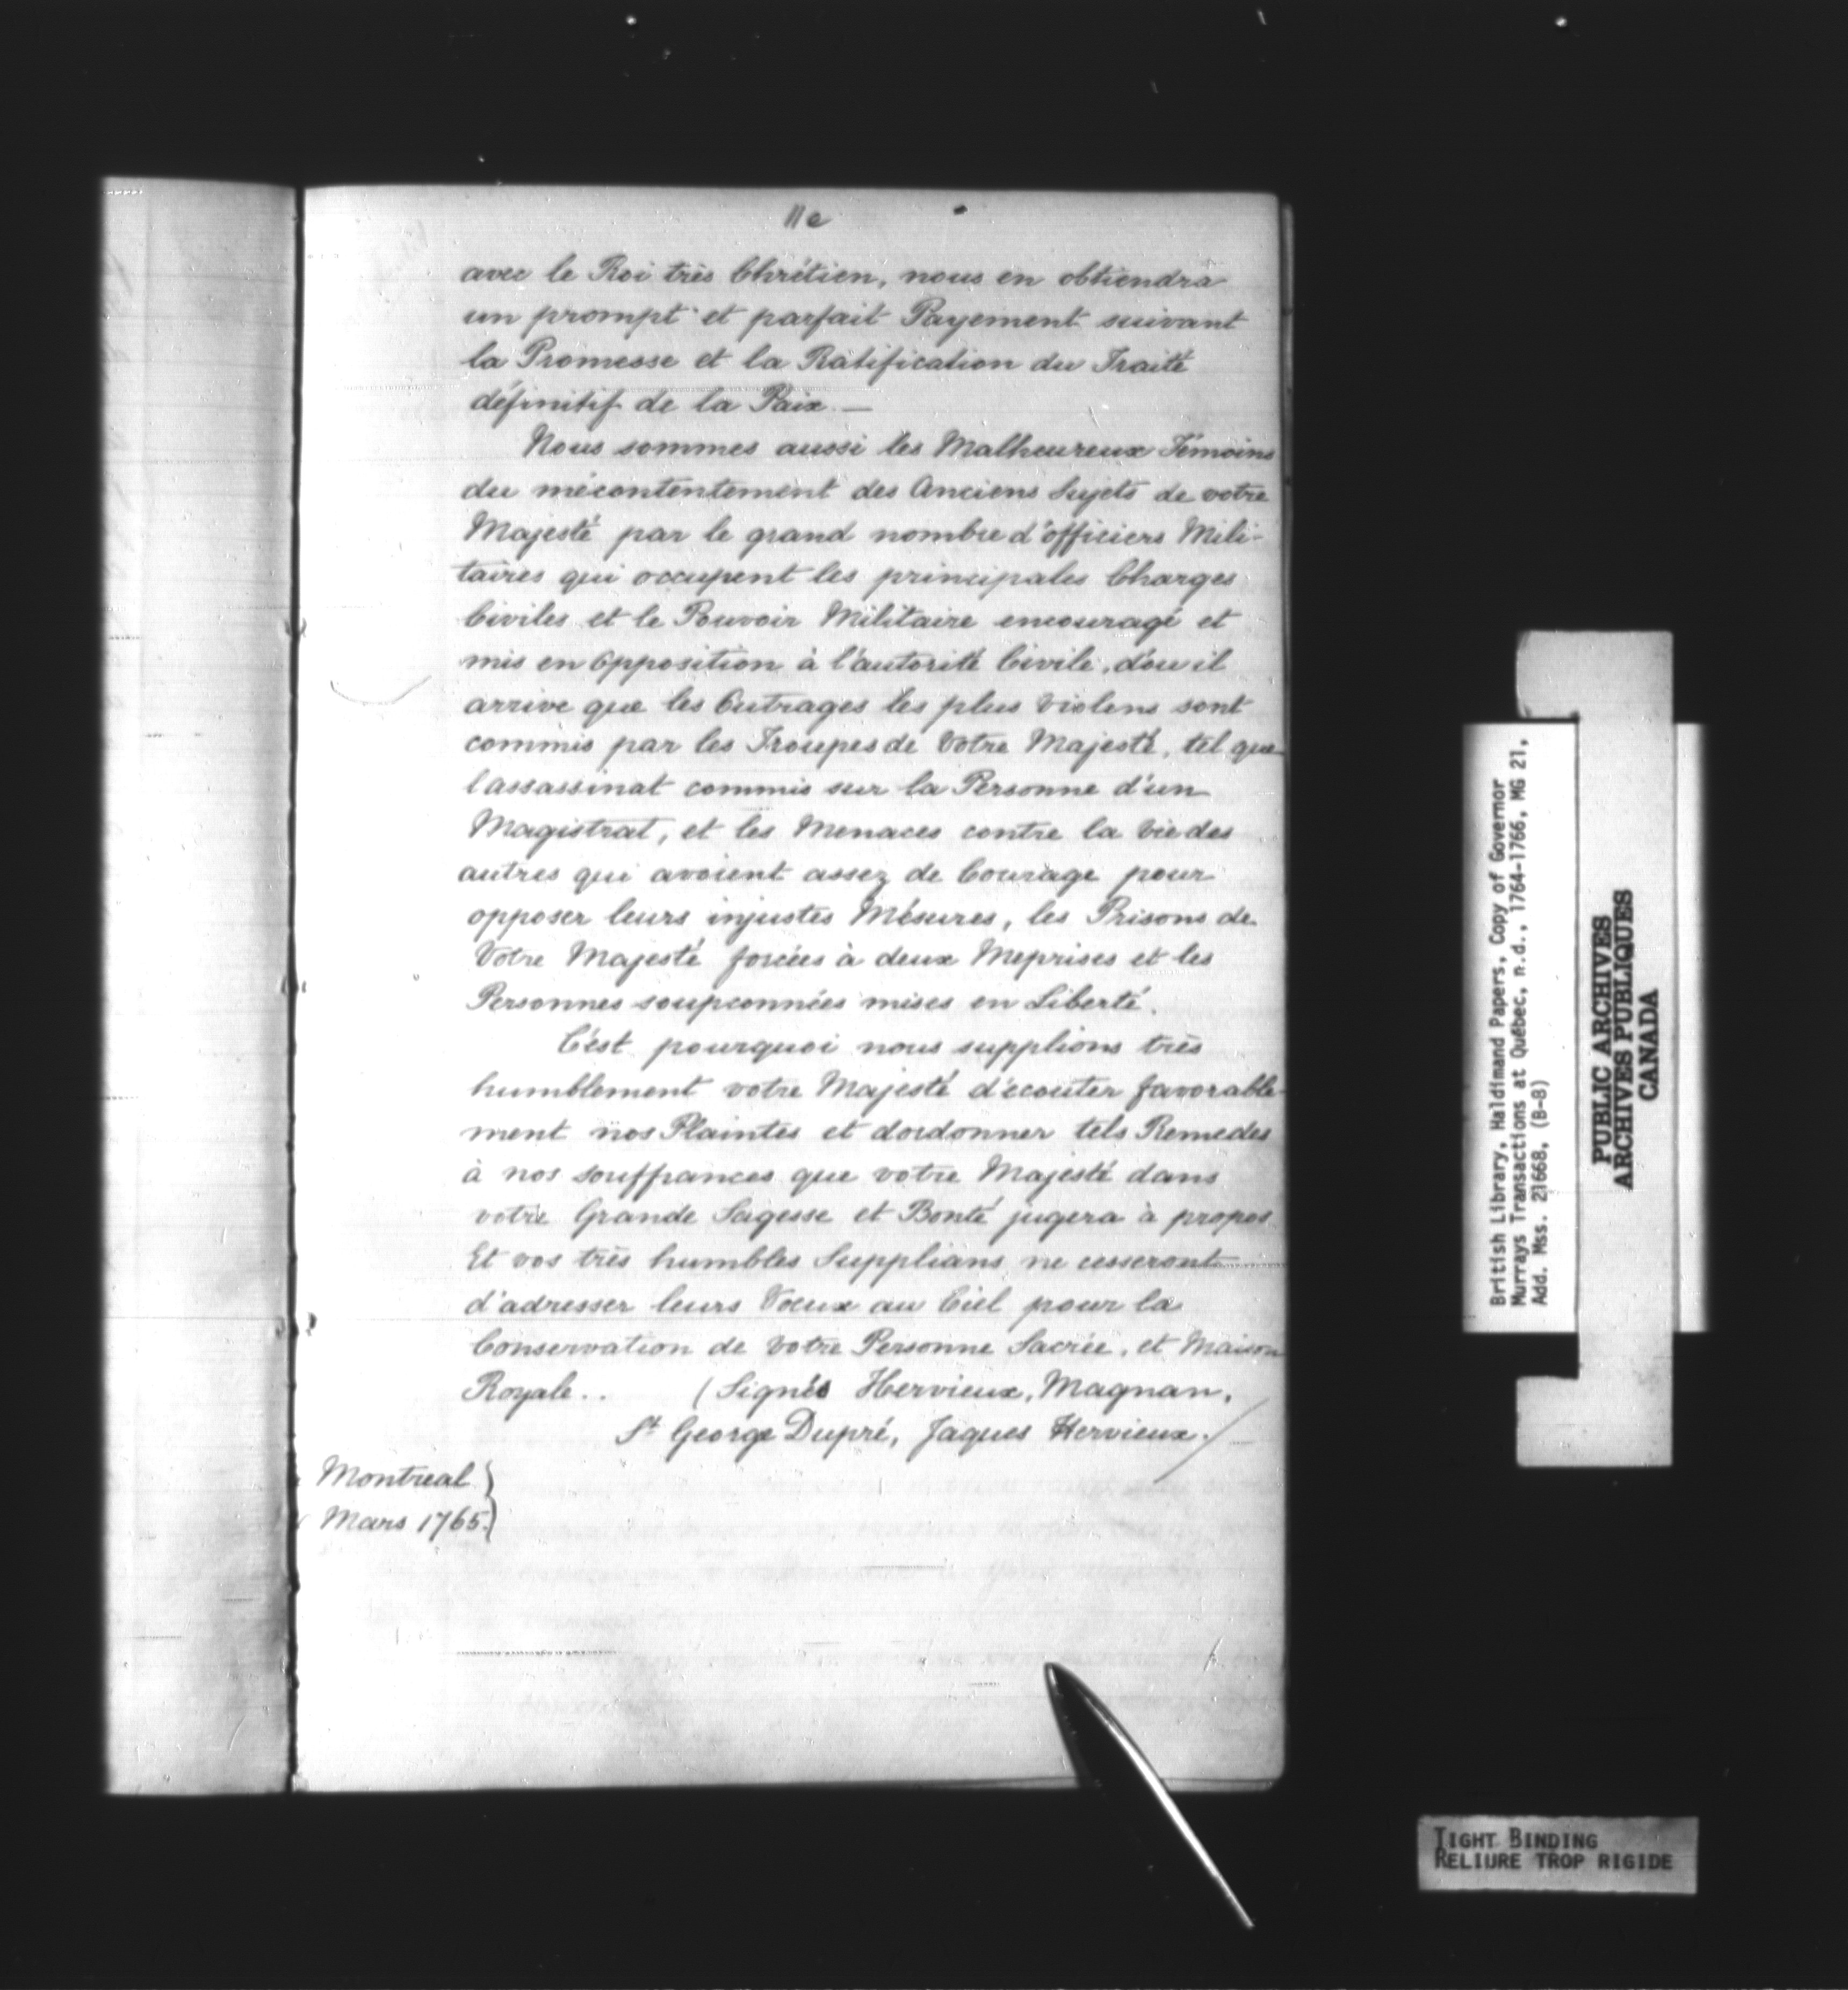 11e
avec le Roi très Chrétien, nous en obtiendra
un prompt et parfait Payement suivant
la Promesse et la Ratification du Traité
définitif de la Paix. —
Nous sommes aussi les Malheureux Témoins
du mécontentement des Anciens Sujets de votre
Majesté par le grand nombre d'officiers Mili-
taires qui occupent les principales Charges
Civiles et le Pouvoir Militaire encouragé et
mis en Opposition à l'autorité Civile, d'ou il
arrive que les Outrages les plus violens sont
commis par les Troupes de Votre Majesté, tel que
l'assassinat commis sur la Personne d'un
Magistrat, et les Menaces contre la Vie des
autres qui avoient assez de Courage pour
opposer leurs injustes Mésures, les Prisons de
Votre Majesté forcées à deux Meprises et les
Personnes soupconnées mises en Liberté.
C'est pourquoi nous supplions très
humblement votre Majesté d'écouter favorable-
ment nos Plaintes et dordonner tels Remedes
à nos souffrances que votre Majesté dans
votre Grande Sagesse et Bonté jugera à propos
Et vos très humbles Supplians ne cesseront
d'adresser leurs Voeux au Ciel pour la
Conservation de Votre Personne Sacrée, et Maison
Royale.. (Signés Hervieux, Magnan,
St George Dupré, Jaques Hervieux./
Montreal }
Mars 1765.}
British Library, Haldimand Papers, Copy of Governor
Murrays Transactions at Québec, n.d., 1764-1766, MG 21,
Add. Mss. 21668, (B-8)
PUBLIC ARCHIVES
ARCHIVES PUBLIQUES
CANADA
TIGHT BINDING
RELIURE TROP RIGIDE